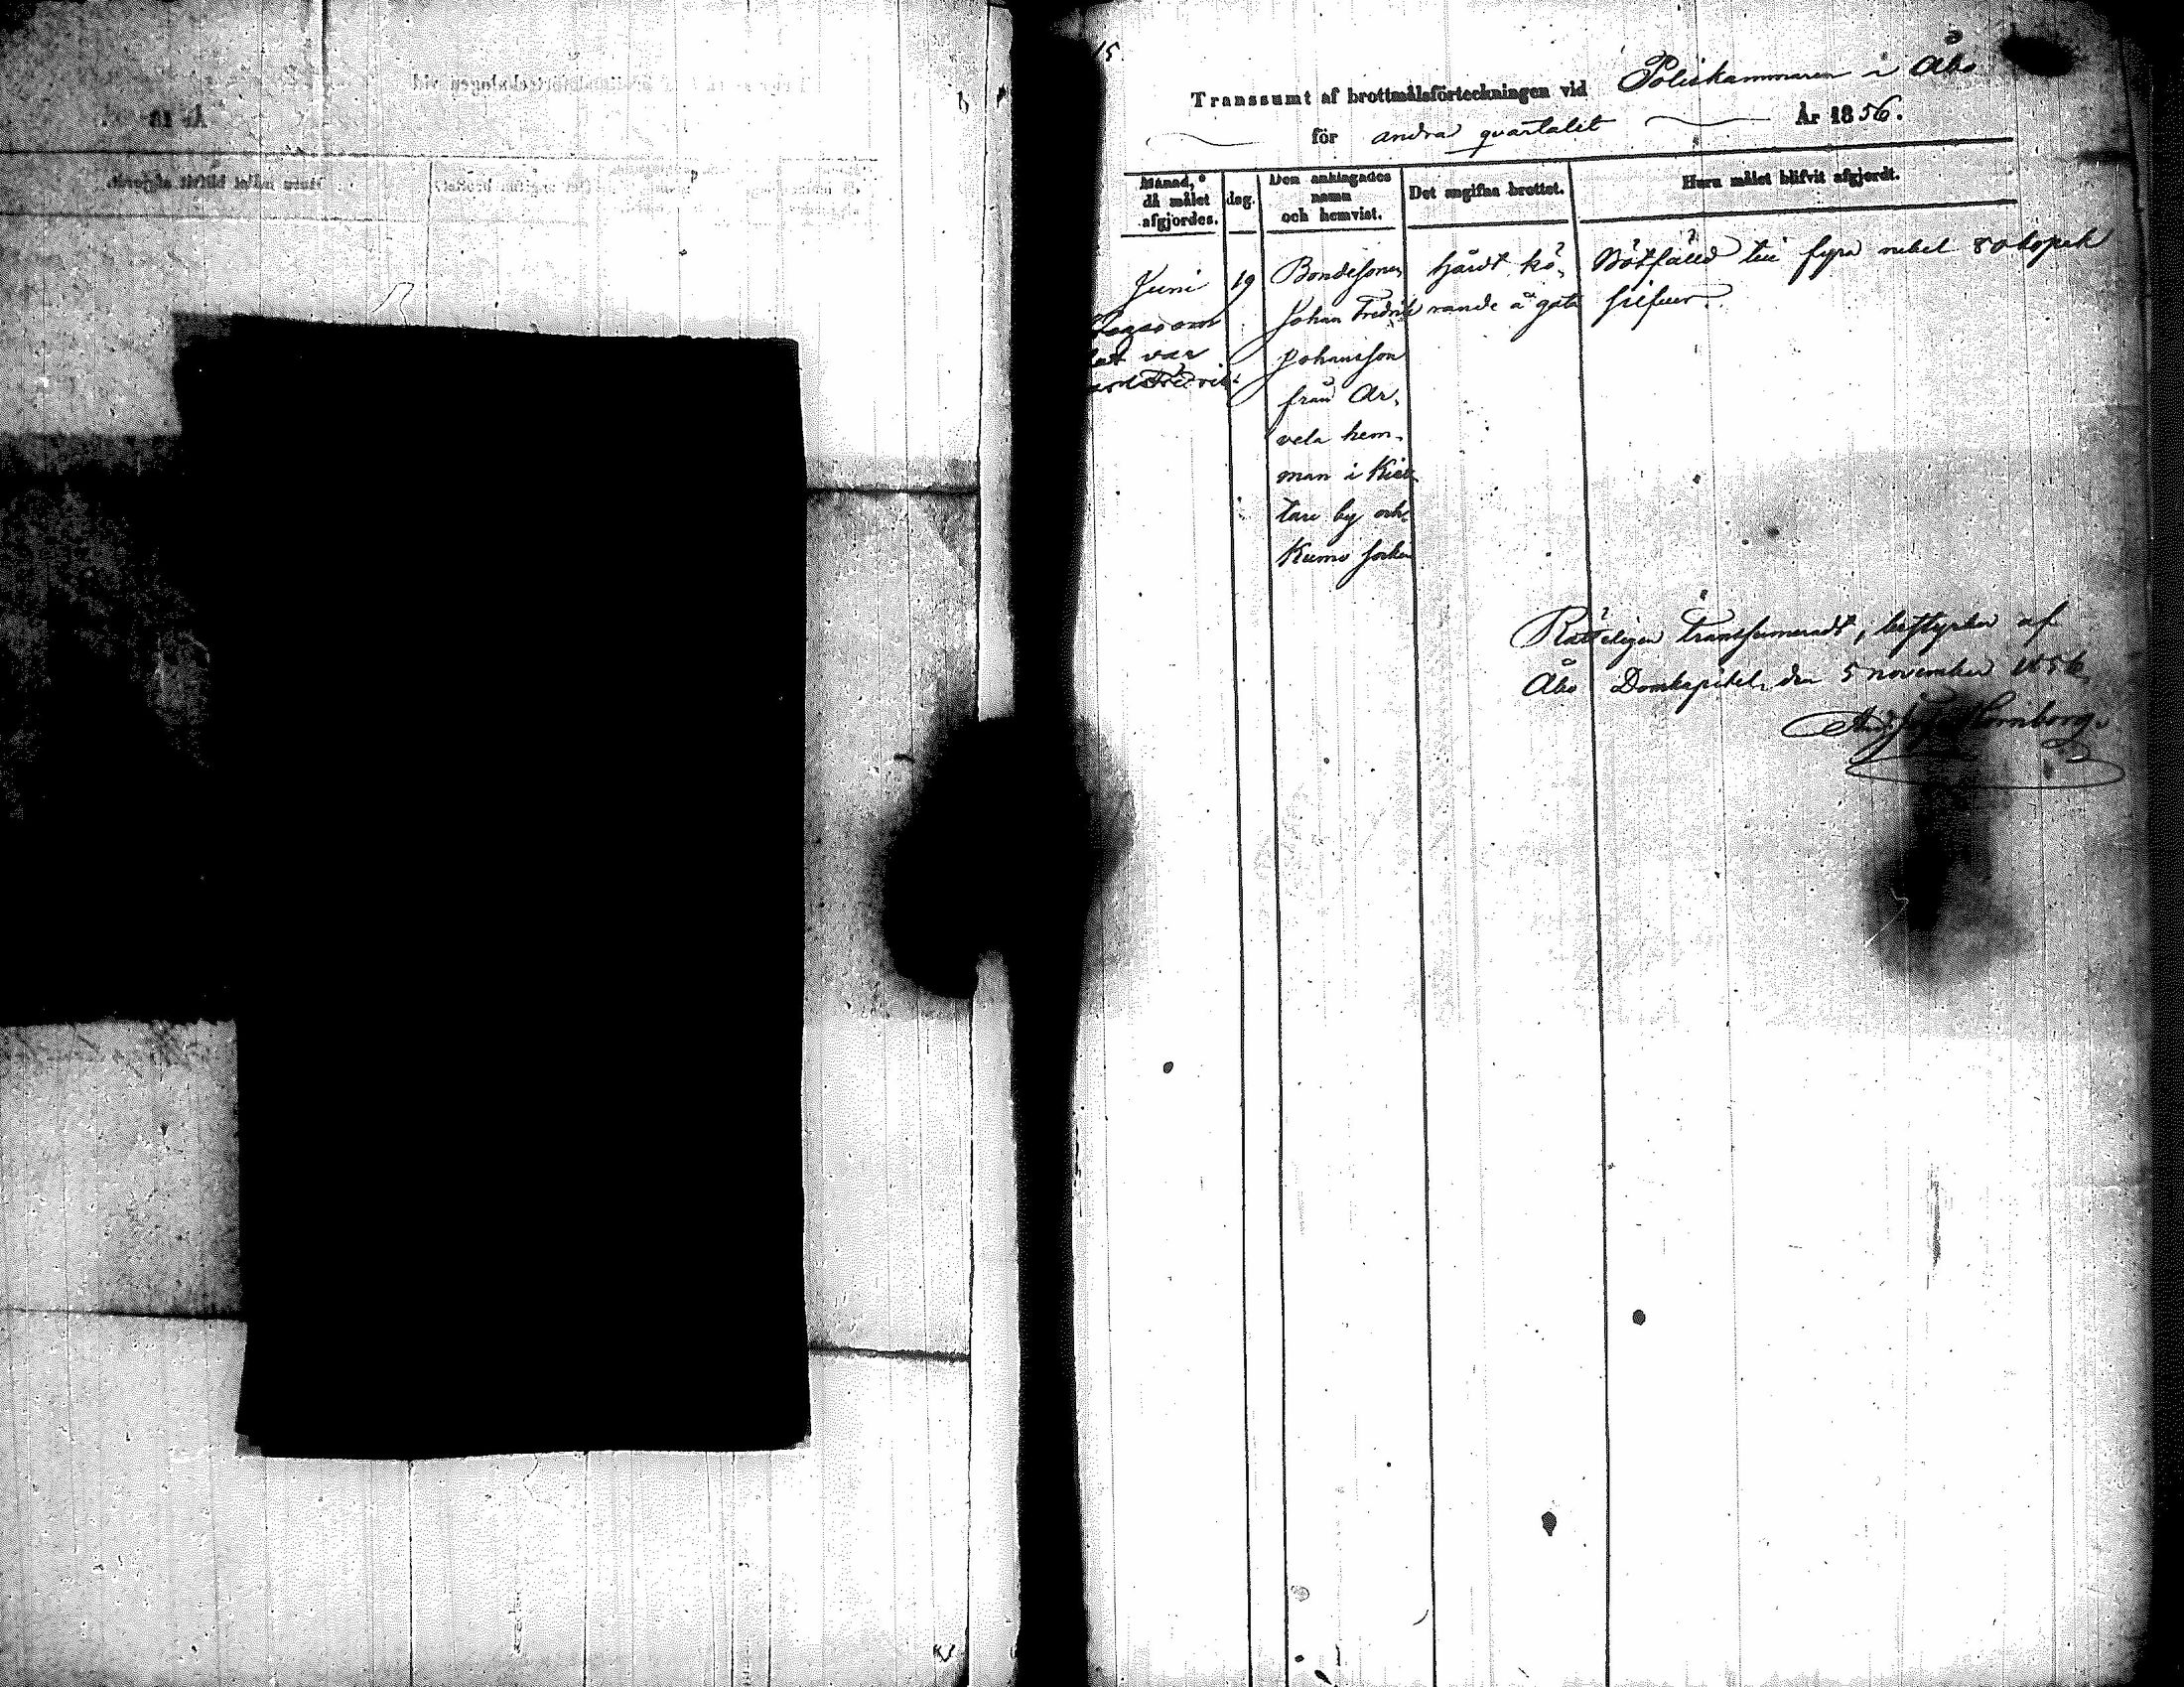 15
Transsumt af brottmålsförteckningen vid Poliskammaren i Åbo
för andra quartalet År 1856.
Månad, då målet afgjordes.
dag.
Den anklagades namn och hemvist.
Det angifna brottet.
Huru målet blifvit afgjordt.
Juni 19 Bondesonen hårdt kö- Bötfälld till fyra rubel 80 kopek
Johan Fredrik rande å gata silfver.
Johansson
från Ar-
vela hem-
man i
by och
Kumo socken
var
Rätteligen transsumeradt, bestyrker af
Åbo Domkapitel den 5 november 1856.
Hornborg.